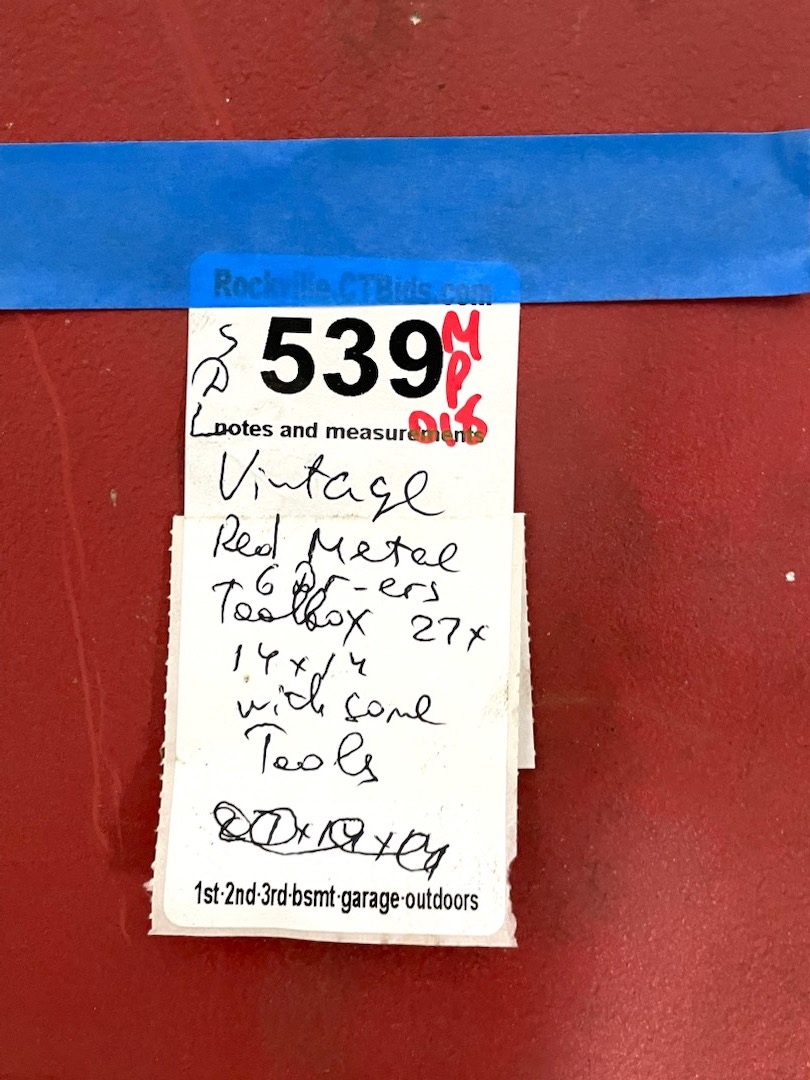 Rockville.CTBids.com
S
D
L
539
M
P
DIS
notes and measurements
Vintage
Red Metal
6 Dr-ers
Toolbox 27x
14x14
with some
Tools
1st·2nd·3rd·bsmt·garage·outdoors